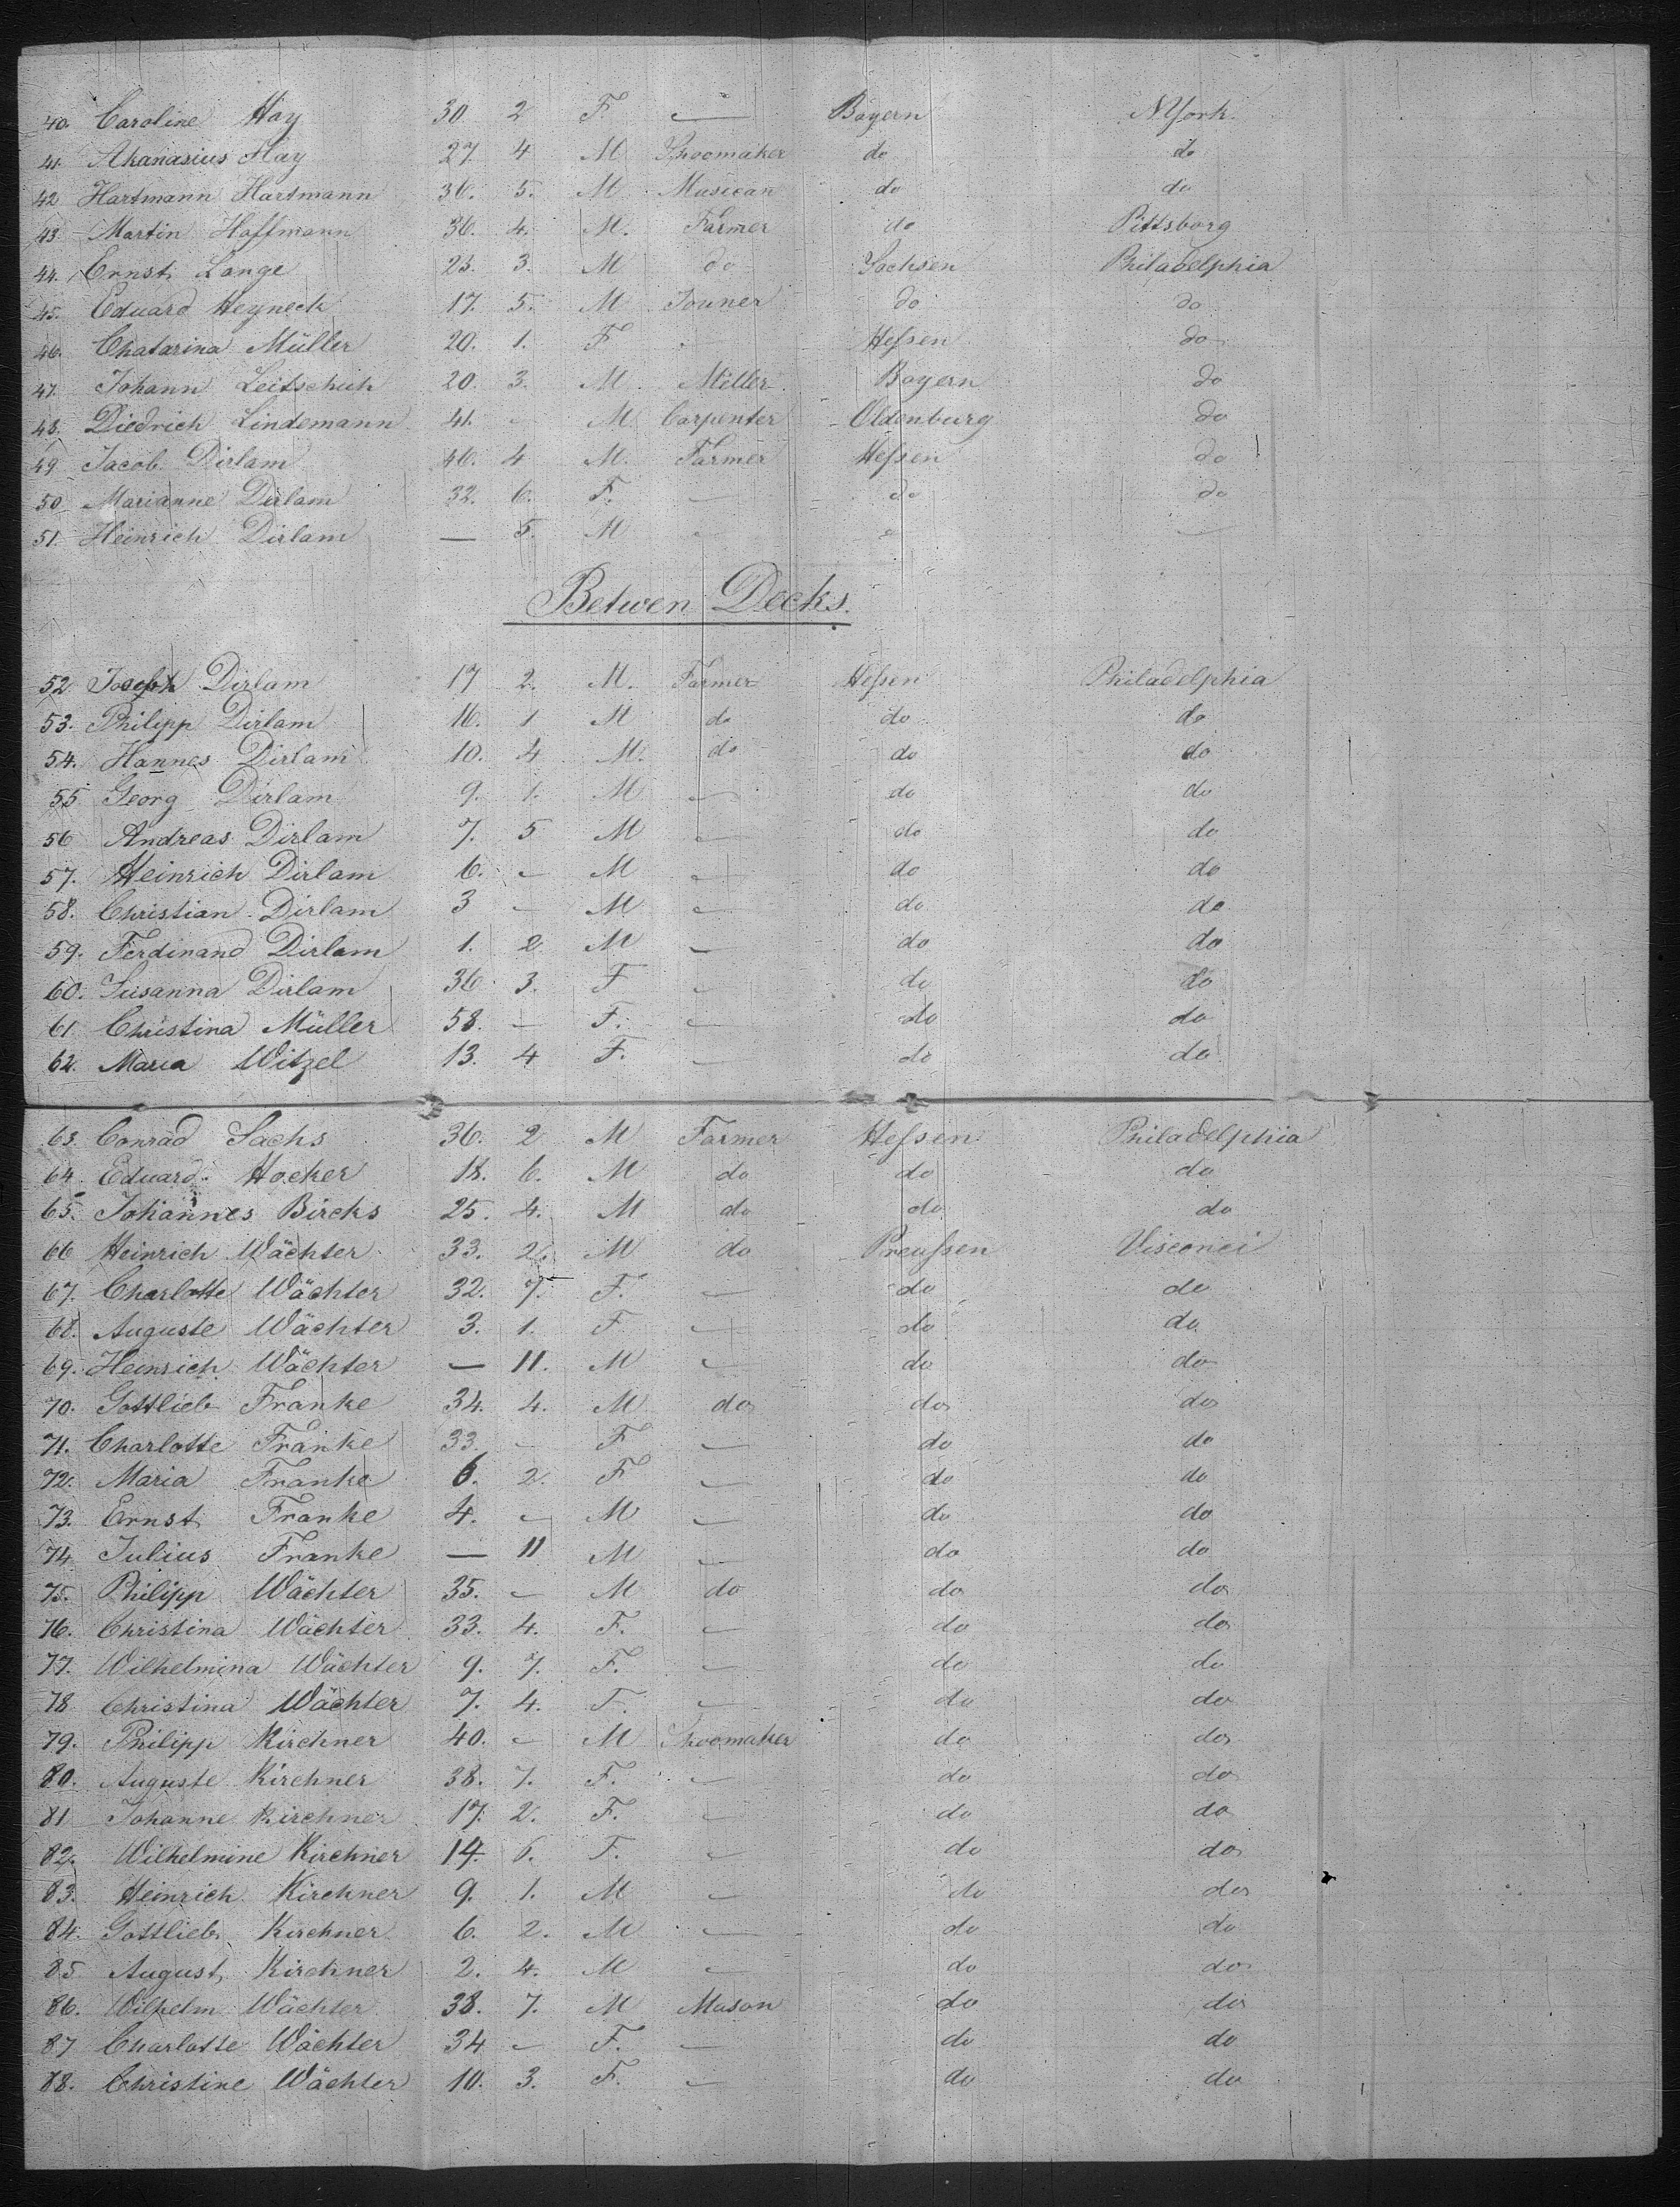 40. Caroline Hay 30 2 F. — Bayern N.York.
41. Ahanasius Hay 27. 4 M Shoomaker do do
42 Hartmann Hartmann 36. 5. M Musican do do
43 Martin Hoffmann 36. 4. M. Farmer do Pittsborg
44. Ernst Lange 23. 3. M do Sachsen Philadelphia
45. Eduard Heyneck 17. 5. M Jouner do do
46. Chatarina Müller 20. 1. F - Heſsen do
47. Johann Leitschuh 20. 3. M. Miller Bayern do
48. Diedrich Lindemann 41. - M. Carpenter Oldenburg do
49 Jacob Dirlam 46. 4 M. Farmer Heſsen do
50 Marianne Dirlam 32. 6. F. - do do
51. Heinrich Dirlam — 5. M - - —
Betwen Decks.
52. Joseph Dirlam 17 2. M. Farmer Heſsen Philadelphia
53. Philipp Dirlam 16. 1 M do do do
54. Hannes Dirlam 10. 4 M. do do do
55 Georg Dirlam 9. 1. M — do do
56 Andreas Dirlam 7. 5 M — do do
57. Heinrich Dirlam 6. - M — do do
58. Christian Dirlam 3 - M — do do
59. Ferdinand Dirlam 1. 2 M — do do
60. Susanna Dirlam 36. 3. F — do do
61 Christina Müller 58. — F. — do do
62. Maria Witzel 13. 4 F. — do do
63. Conrad Sachs 36. 2 M Farmer Heſsen Philadelphia
64. Eduard Hocker 18. 6. M do do do
65. Johannes Bircks 25. 4. M do do do
66 Heinrich Wächter 33. 2. M do Preuſsen Visconci
67. Charlotte Wächter 32. 7. F. — do do
68. Auguste Wächter 3. 1. F — do do
69. Heinrich Wächter — 11. M — do do
70. Gottlieb Franke 34. 4. M do do do
71. Charlotte Franke 33. - F — do do
72. Maria Franke 6. 2 F — do do
73. Ernst Franke 4. - M — do do
74 Julius Franke — 11 M — do do
75. Philipp Wächter 35. - M do do do
76. Christina Wächter 33. 4. F. — do do
77. Wilhelmina Wächter 9. 7. F. — do do
78 Christina Wächter 7. 4. F. — do do
79. Philipp Kirchner 40. - M Shoomaker do do
80. Auguste Kirchner 38. 7. F. — do do
81 Johanne Kirchner 17. 2. F. — do do
82. Wilhelmine Kirchner 14. 6. F. — do do
83. Heinrich Kirchner 9. 1. M — do do
84. Gottlieb Kirchner 6. 2. M — do do
85 August Kirchner 2. 4. M — do do
86. Wilhelm Wächter 38. 7. M Mason do do
87 Charlotte Wächter 34 - F. — do do
88. Christine Wächter 10. 3. F. — do do